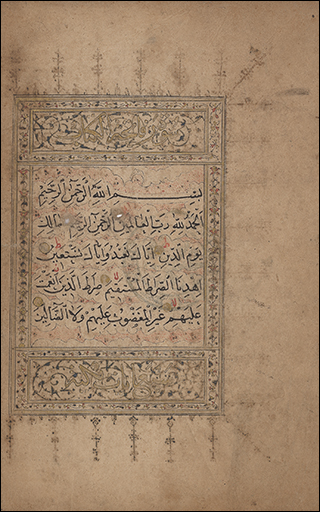 بِسْمِ اللَّهِ الرَّحْمَنِ الرَّحِيمِ
الْحَمْدُ لِلَّهِ رَبِّ الْعَالَمِينَ الرَّحْمَنِ الرَّحِيمِ مَالِكِ
يَوْمِ الدِّينِ إِيَّاكَ نَعْبُدُ وَإِيَّاكَ نَسْتَعِينُ
اهْدِنَا الصِّرَاطَ الْمُسْتَقِيمَ صِرَاطَ الَّذِينَ أَنْعَمْتَ
عَلَيْهِمْ غَيْرِ الْمَغْضُوبِ عَلَيْهِمْ وَلَا الضَّالِّينَ